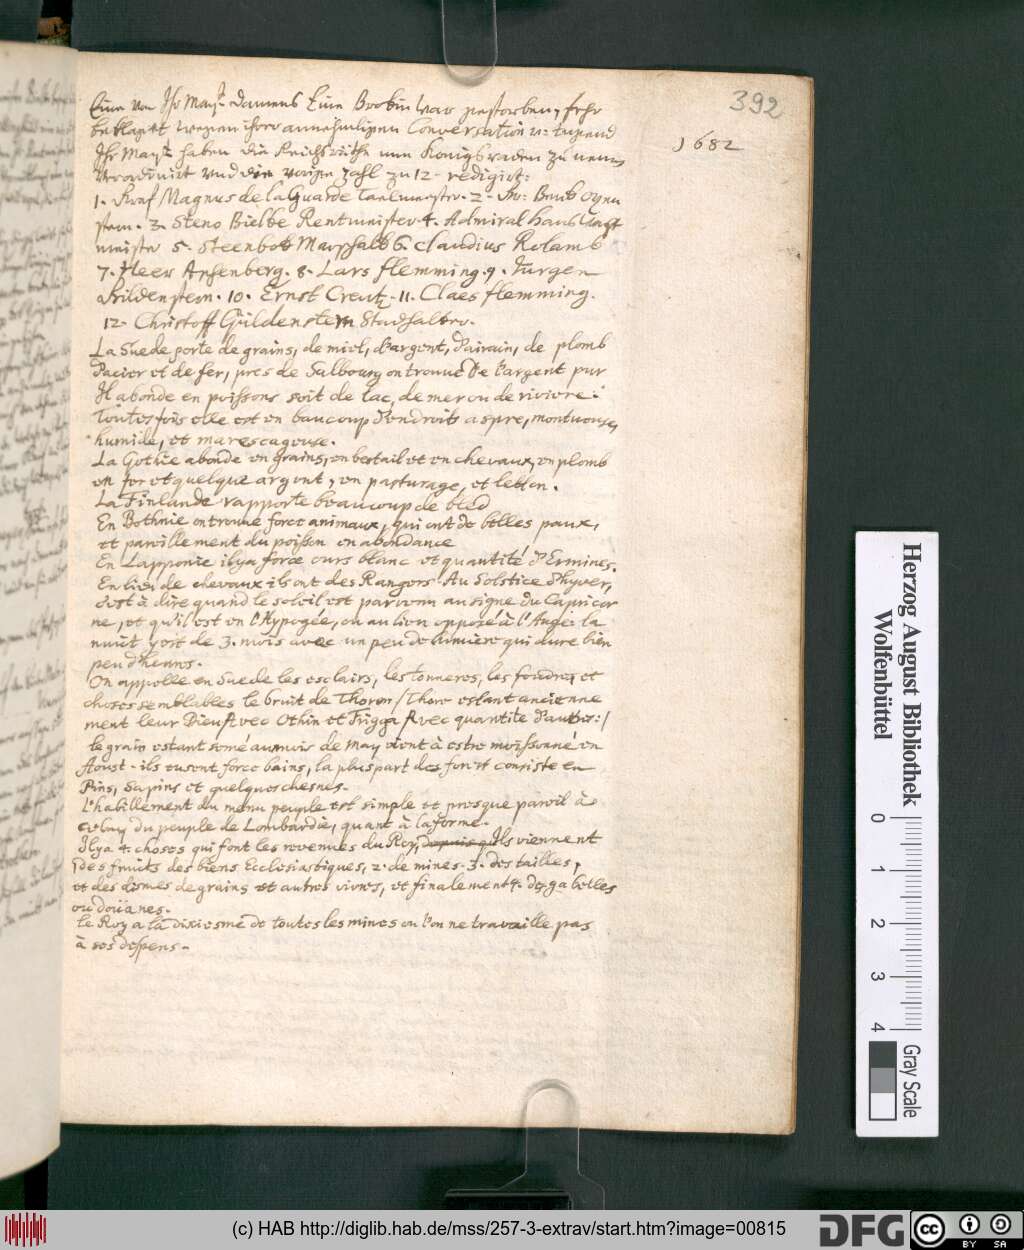 392
1682
Eine von Ihr Mayt. Damens Eine Brokin war gestorben, sehr
beklaget wegen ihrer annehmlichen Conversation u: tugend
Ihr Mayt. haben die Reichsräthe nun Königsraden zu
Verordnirt und die vorige zahl zu 12 redigirt:
1. Graf Magnus de la Guarde 2.
stern. 3. Steno Bielke Rentmeister. 4. Admiral Hans
meister 5. Steenbok Marschalk 6. Claudius Rolamb
7. Heer Apsenberg. 8. Lars flemming. 9. Jurgen
Gildenstern. 10. Ernst Creutz. 11. Claes flemming.
12. Christoff Güldenstern Stadhalter.
La Suede porte de grains, de miel, d'argent, d'airain, de plomb
d'acier et de fer, pres de Salbourg on trouve de l'argent pur
Il abonde en poissons soit de lac, de mer ou de riviere.
Toutesfois elle est en baucoup d'endroits aspre, montueuse,
humide, et marescageuse.
La Gothie abonde en grains, en bestail et en chevaux, en plomb
en fer et quelque argent, en pasturage, et
La Finlande rapporte beaucoup de bled
En Bothnie on trouve force animaux, qui ont de belles paux,
et pareillement du poisson en abondance
En Lapponie il ya force ours blanc et quantité d'Ermines.
En lieu de chevaux ils ont des Rangers. Au Solstice d'hyver,
c'est à dire quand le soleil est parvenu au signe du Capricor
ne, et qu'il est en l'Hypogée, ou au lieu opposé à l'Auge: la
nuit y est de 3. mois avec un peu de lumiere qui dure bien
peu d'heures.
On appelle en Suede les esclairs, les tonneres, les foudres et
choses semblables le bruit de Thoron / Thoro estant ancienne
ment leur Dieu Avec Othin et Frigga Avec quantite d'autres: /
le grain estant semé au mois de May vient à estre moissonné en
Aoust. ils eusent force bains, la pluspart des forest consiste en
Pins, Sapins et quelques chesnes.
L'habillement du menu peuple est simple et presque pareil à
celuy du peuple de Lombardie, quant à la forme.
Il ya 4. choses qui font les revenues du Roy, depuis qu'Ils viennent
des fruits des biens Ecclesiastiques, 2. de mines. 3. des tailles,
et des dismes de grains et autres vivres, et finalement 4. des gabelles
ou doüanes.
le Roy a la dixiesme de toutes les mines ou l'on ne travaille pas
à ses despens.
Herzog August Bibliothek
Wolfenbüttel
0
1
2
3
4
Gray Scale
(c) HAB http://diglib.hab.de/mss/257-3-extrav/start.htm?image=00815
DFG
cc
BY
SA